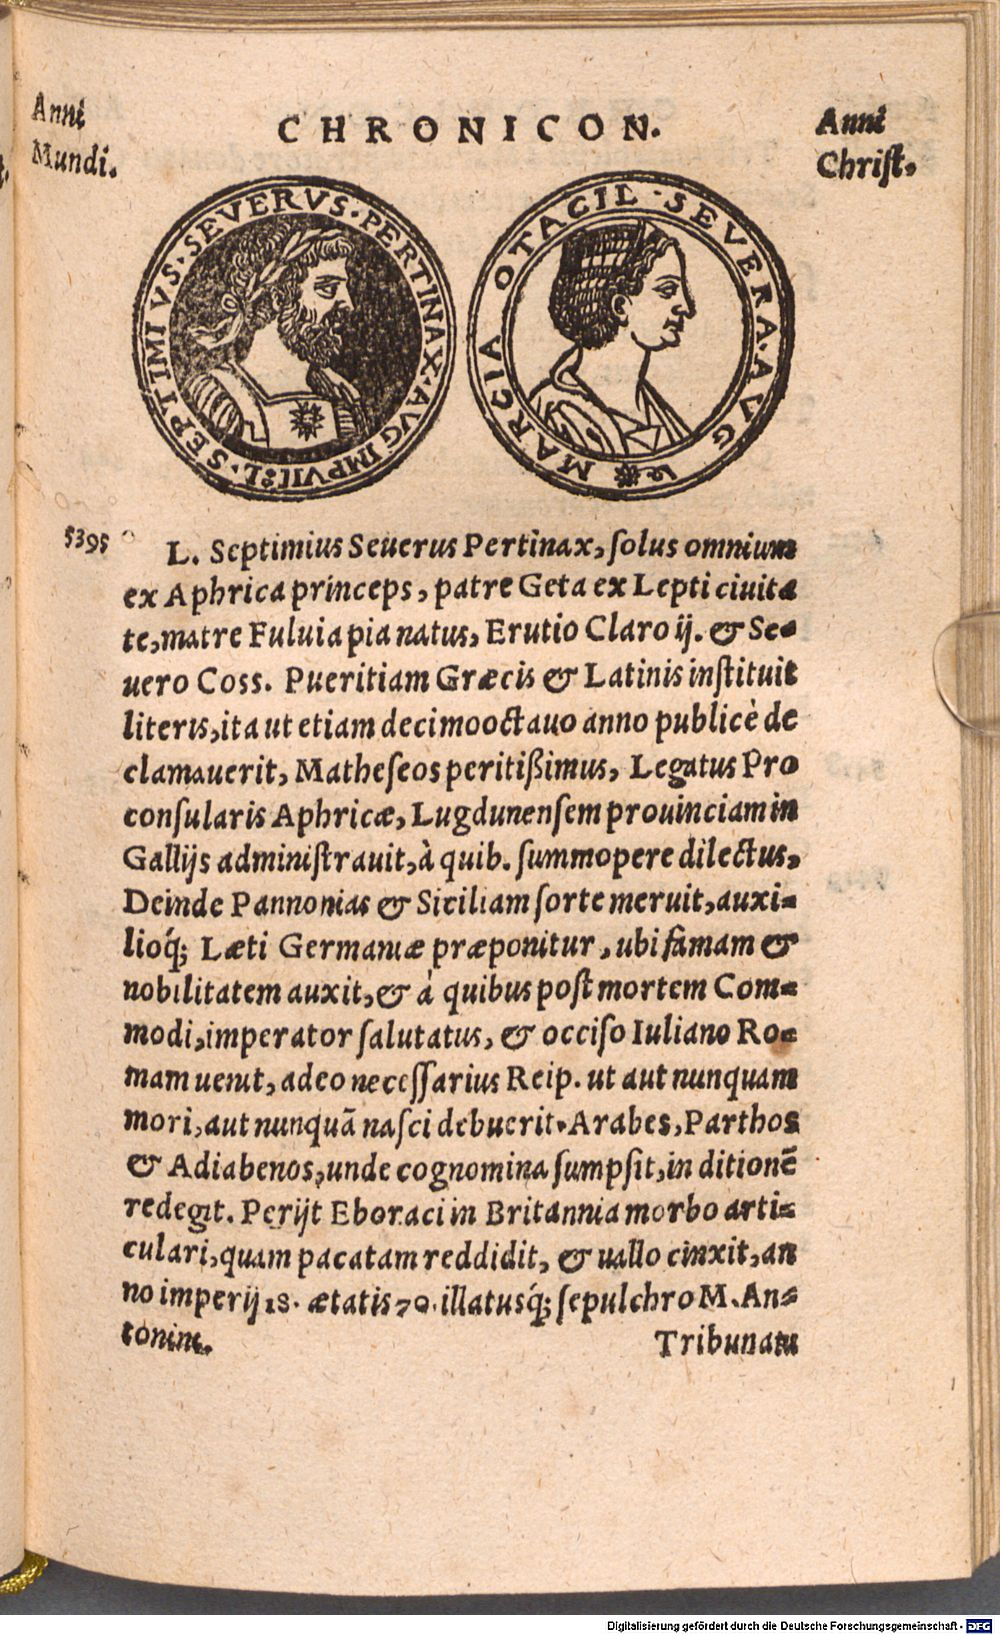 Anni
Mundi.
CHRONICON.
Anni
Chriſt.
L. SEPTIMIVS · SEVERVS · PERTINAX · AVG IMP VII
MARCIA OTACIL · SEVERA · AVG
5395
L. Septimius Seuerus Pertinax, ſolus omnium
ex Aphrica princeps, patre Geta ex Lepti ciuita
te, matre Fuluia pia natus, Erutio Claro ij. & Se-
uero Coss. Pueritiam Græcis & Latinis inſtituit
literis, ita ut etiam decimooctauo anno publicè de
clamauerit, Matheſeos peritißimus, Legatus Pro
conſularis Aphricæ, Lugdunenſem prouinciam in
Gallijs adminiſtrauit, à quib. ſummopere dilectus,
Deinde Pannonias & Siciliam ſorte meruit, auxi-
lioq́; Læti Germaniæ præponitur, ubi famam &
nobilitatem auxit, & à quibus poſt mortem Com-
modi, imperator ſalutatus, & occiſo Iuliano Ro-
mam uenit, adeo neceſſarius Reip. ut aut nunquam
mori, aut nunquã naſci debuerit. Arabes, Parthos
& Adiabenos, unde cognomina ſumpſit, in ditionẽ
redegit. Perijt Eboraci in Britannia morbo arti-
culari, quam pacatam reddidit, & uallo cinxit, an
no imperij 18. ætatis 70. illatusq́; ſepulchro M. An-
tonini.
Tribunatu
Digitalisierung gefördert durch die Deutsche Forschungsgemeinschaft - DFG